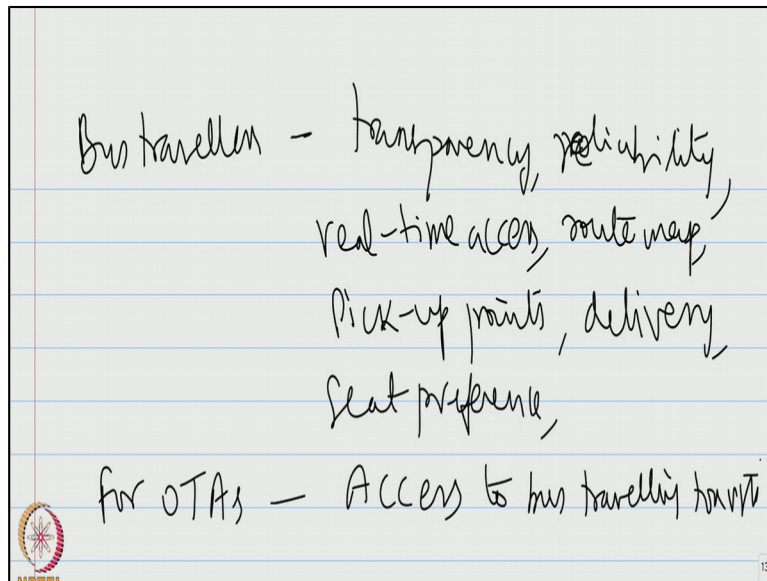 Bus travellers - transparency, reliability,
real-time access, route map,
Pick-up points, delivery,
Seat preference,
For OTAs - Access to bus travelling tourist
NPTEL
13